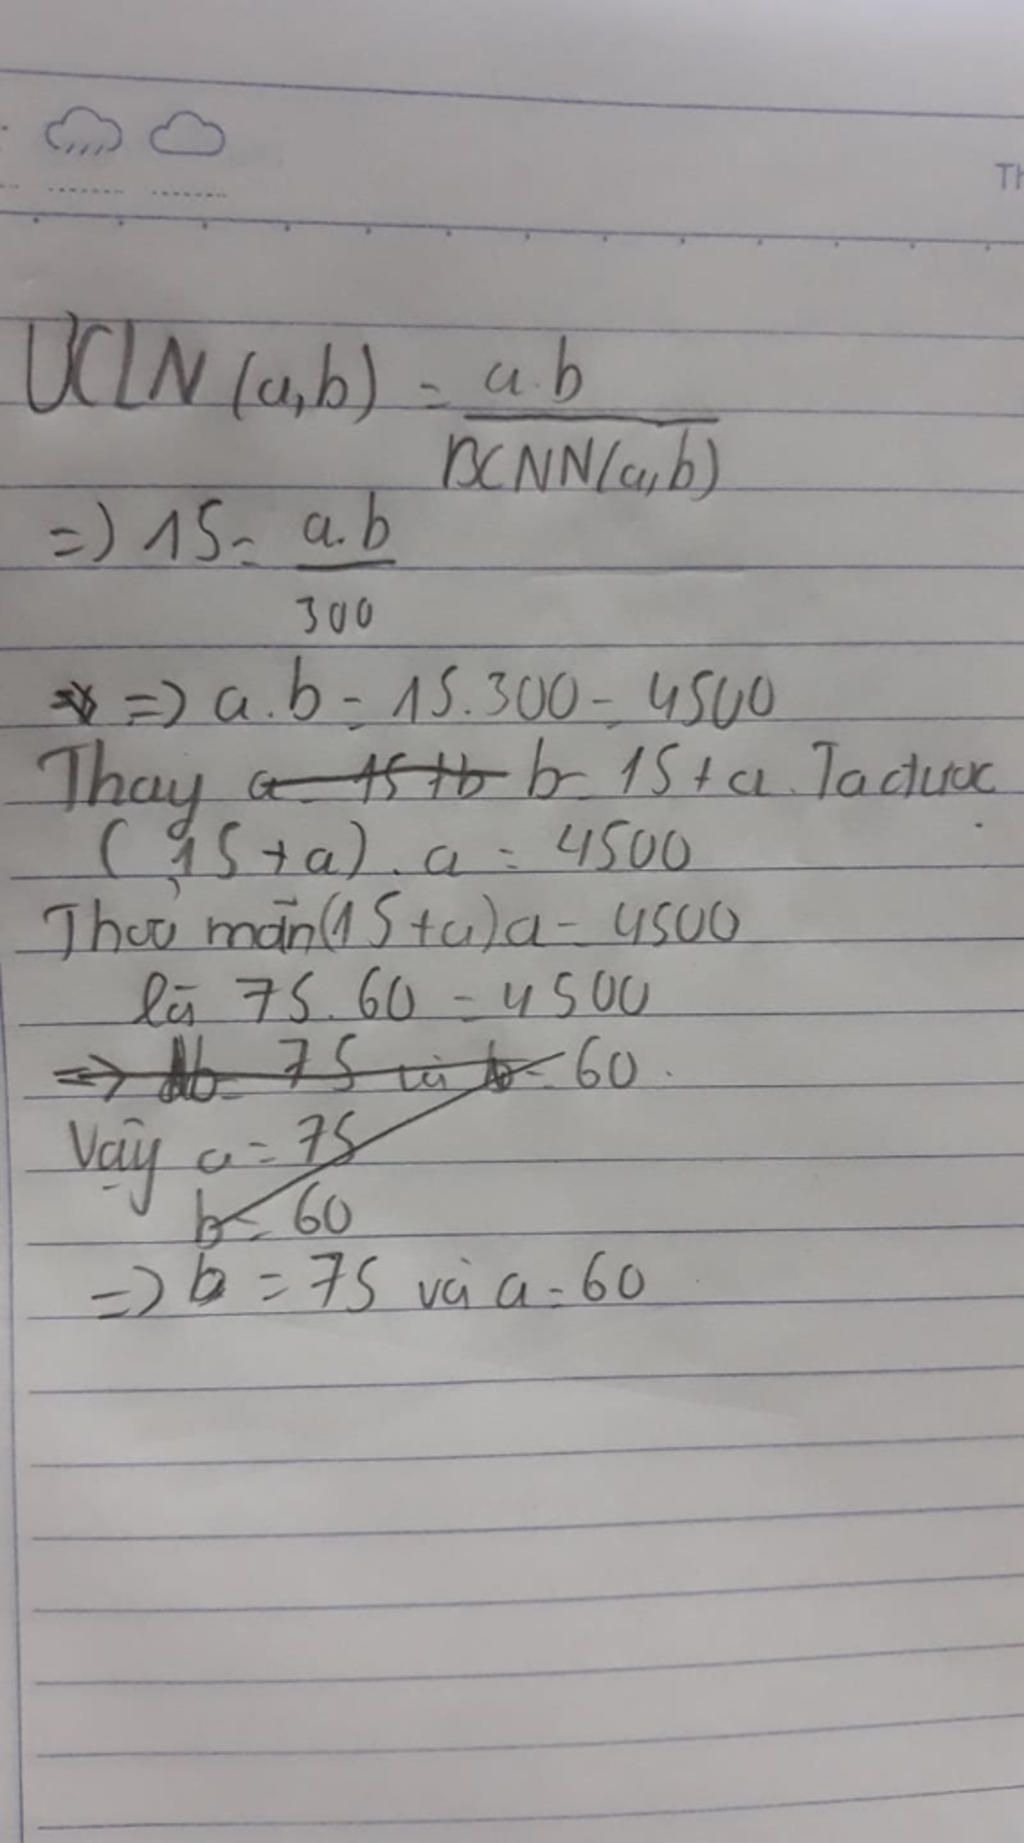 Th
ƯCLN (a,b) = a.b
BCNN(a,b)
=) 15 = a.b
300
=) a.b = 15.300 = 4500
Thay a = 15 + b b = 15 + a. Ta được
(15 + a) . a = 4500
Thoả mãn (15 + a)a = 4500
là 75.60 = 4500
=> b = 75 và b = 60.
Vậy a = 75
b = 60
=) b = 75 và a = 60